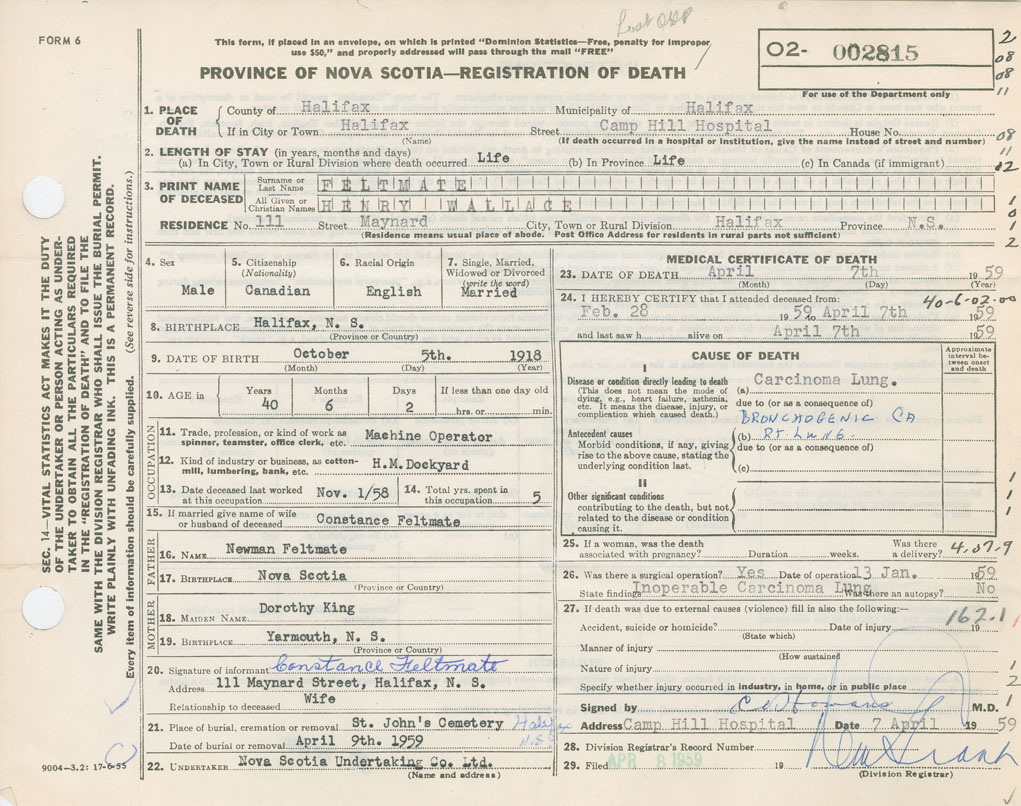 Last Occ
FORM 6
This form, if placed in an envelope, on which is printed "Dominion Statistics—Free, penalty for improper
use $50," and properly addressed will pass through the mail "FREE"
PROVINCE OF NOVA SCOTIA—REGISTRATION OF DEATH
O2- 002815
For use of the Department only
2
08
11
1. PLACE OF DEATH { County of Halifax Municipality of Halifax
If in City or Town Halifax Street Camp Hill Hospital House No.
(Name) (If death occurred in a hospital or institution, give the name instead of street and number)
08
11
02
2. LENGTH OF STAY (in years, months and days)
(a) In City, Town or Rural Division where death occurred Life (b) In Province Life (c) In Canada (if immigrant)
3. PRINT NAME OF DECEASED
Surname or Last Name FELTMATE
All Given or Christian Names HENRY WALLACE
RESIDENCE No. 111 Street Maynard City, Town or Rural Division Halifax Province N.S.
(Residence means usual place of abode. Post Office Address for residents in rural parts not sufficient)
1
0
1
2
SEC. 14—VITAL STATISTICS ACT MAKES IT THE DUTY
OF THE UNDERTAKER OR PERSON ACTING AS UNDER-
TAKER TO OBTAIN ALL THE PARTICULARS REQUIRED
IN THE "REGISTRATION OF DEATH" AND TO FILE THE
SAME WITH THE DIVISION REGISTRAR WHO SHALL ISSUE THE BURIAL PERMIT.
WRITE PLAINLY WITH UNFADING INK. THIS IS A PERMANENT RECORD.
Every item of information should be carefully supplied. (See reverse side for instructions.)
4. Sex Male
5. Citizenship (Nationality) Canadian
6. Racial Origin English
7. Single, Married, Widowed or Divorced (write the word) Married
8. BIRTHPLACE Halifax, N. S.
(Province or Country)
9. DATE OF BIRTH October 5th. 1918
(Month) (Day) (Year)
10. AGE in Years 40 Months 6 Days 2 If less than one day old hrs. or min.
OCCUPATION
11. Trade, profession, or kind of work as spinner, teamster, office clerk, etc. Machine Operator
12. Kind of industry or business, as cotton-mill, lumbering, bank, etc. H.M.Dockyard
13. Date deceased last worked at this occupation Nov. 1/58
14. Total yrs. spent in this occupation 5
15. If married give name of wife or husband of deceased Constance Feltmate
FATHER
16. NAME Newman Feltmate
17. BIRTHPLACE Nova Scotia
(Province or Country)
MOTHER
18. MAIDEN NAME Dorothy King
19. BIRTHPLACE Yarmouth, N. S.
(Province or Country)
20. Signature of informant Constance Feltmate
Address 111 Maynard Street, Halifax, N. S.
Relationship to deceased Wife
21. Place of burial, cremation or removal St. John's Cemetery Halifax N.S.
Date of burial or removal April 9th. 1959
22. UNDERTAKER Nova Scotia Undertaking Co. Ltd.
(Name and address)
9004—3.2: 17-6-55
MEDICAL CERTIFICATE OF DEATH
23. DATE OF DEATH April 7th 1959
(Month) (Day) (Year)
24. I HEREBY CERTIFY that I attended deceased from: 40-6-02-00
Feb. 28 1959 to April 7th 1959
and last saw h alive on April 7th 1959
CAUSE OF DEATH
Approximate interval between onset and death
I
Disease or condition directly leading to death
(This does not mean the mode of dying, e.g., heart failure, asthenia, etc. It means the disease, injury, or complication which caused death.)
(a) Carcinoma Lung.
due to (or as a consequence of)
BRONCHOGENIC CA
Antecedent causes
Morbid conditions, if any, giving rise to the above cause, stating the underlying condition last.
(b) RT. LUNG.
due to (or as a consequence of)
(c)
II
Other significant conditions contributing to the death, but not related to the disease or condition causing it.
1
1
1
25. If a woman, was the death associated with pregnancy? Duration weeks. Was there a delivery? 4.07.9
26. Was there a surgical operation? Yes Date of operation 13 Jan. 1959
State findings Inoperable Carcinoma Lung Was there an autopsy? No
27. If death was due to external causes (violence) fill in also the following:—
162.1
Accident, suicide or homicide? Date of injury 19
(State which)
Manner of injury
(How sustained
Nature of injury
Specify whether injury occurred in industry, in home, or in public place
1
2
1
Signed by M.D.
Address Camp Hill Hospital Date 7 April 1959
28. Division Registrar's Record Number
29. Filed APR 8 1959 19
(Division Registrar)